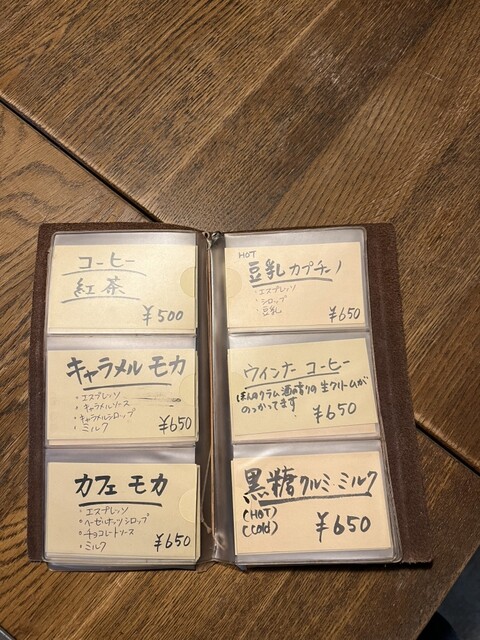 コーヒー
紅茶
¥500
キャラメル モカ
・エスプレッソ
・キャラメルソース
・キャラメルシロップ
・ミルク
¥650
カフェ モカ
・エスプレッソ
・ヘーゼルナッツシロップ
・チョコレートソース
・ミルク
¥650
HOT
豆乳 カプチーノ
・エスプレッソ
・シロップ
・豆乳
¥650
ウインナー コーヒー
ほんのりラム酒の香りの生クリームが
のっかってます
¥650
黒糖クルミ・ミルク
(HOT)
(Cold)
¥650